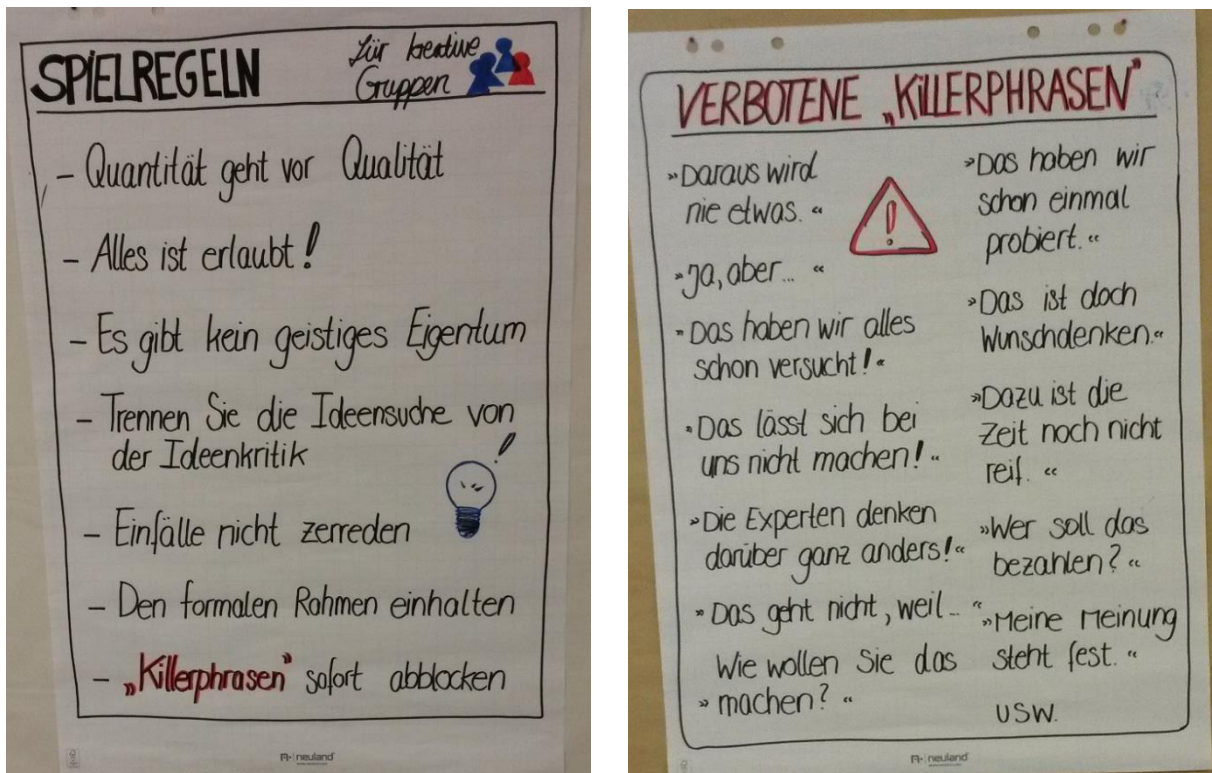 SPIELREGELN
für kreative
Gruppen
- Quantität geht vor Qualität
- Alles ist erlaubt!
- Es gibt kein geistiges Eigentum
- Trennen Sie die Ideensuche von
der Ideenkritik
- Einfälle nicht zerreden
- Den formalen Rahmen einhalten
- „Killerphrasen" sofort abblocken
neuland
VERBOTENE „KILLERPHRASEN"
»Daraus wird
nie etwas.“
»Ja, aber... “
»Das haben wir alles
schon versucht!“
»Das lässt sich bei
uns nicht machen!“
»Die Experten denken
darüber ganz anders!“
»Das geht nicht, weil... “
Wie wollen Sie das
» machen? “
»Das haben wir
schon einmal
probiert.“
»Das ist doch
Wunschdenken.“
»Dazu ist die
Zeit noch nicht
reif. “
»Wer soll das
bezahlen? “
»Meine Meinung
steht fest. “
USW.
neuland